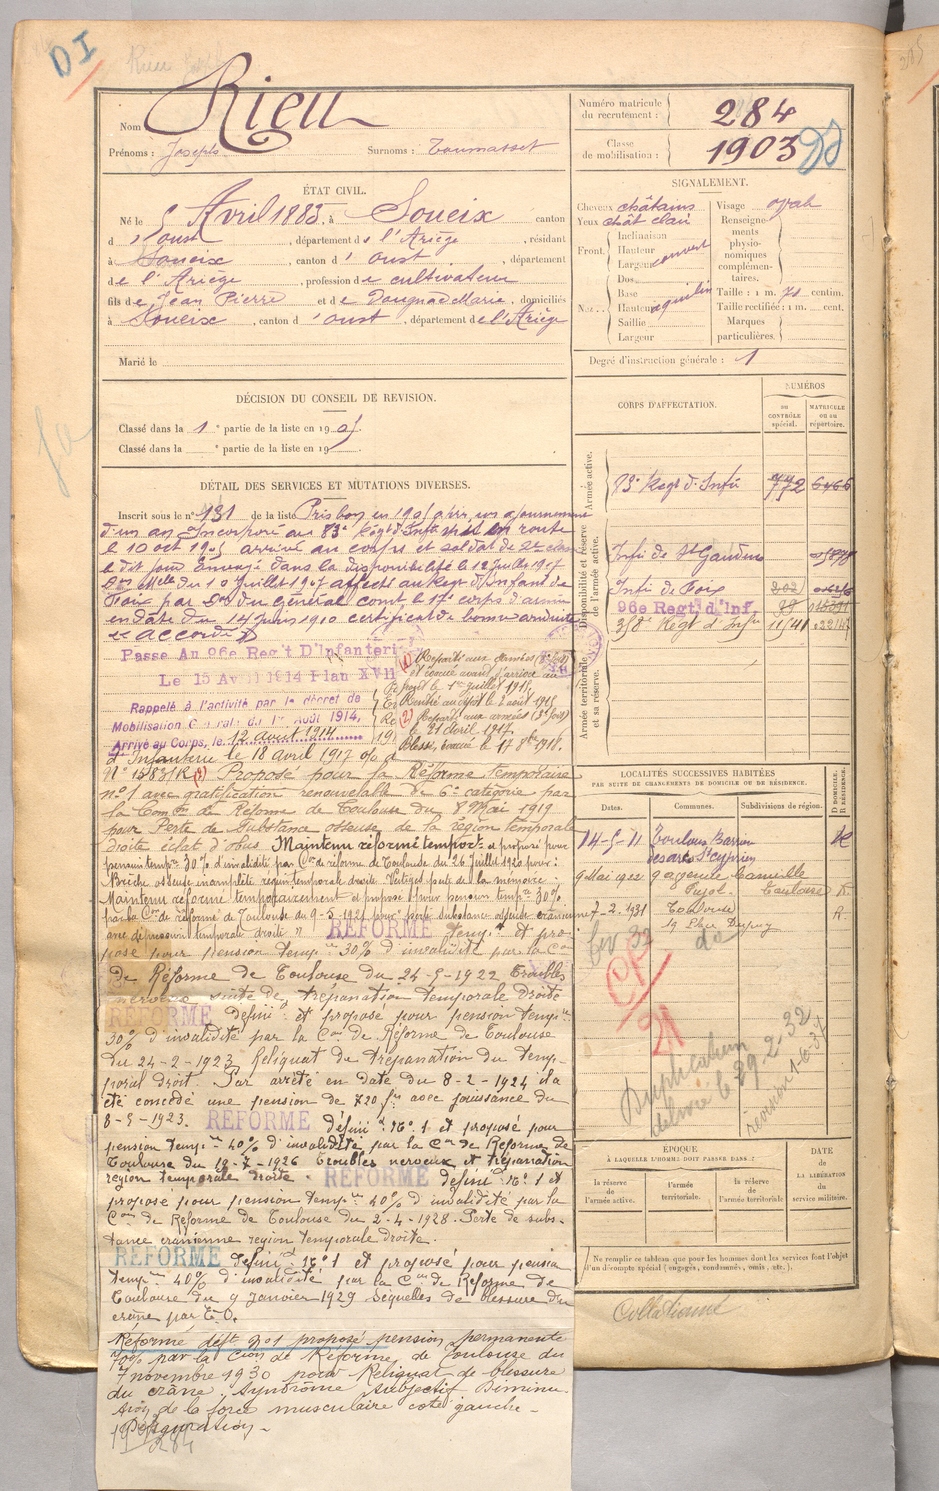 DI
Nom Rieu
Prénoms : Joseph Surnoms : Toumasset
Numéro matricule du recrutement : 284
Classe de mobilisation : 1903
ÉTAT CIVIL.
Né le 5 Avril 1883, à Soueix canton
d'Oust, département de l'Ariège, résidant
à Soueix, canton d'Oust, département
de l'Ariège, profession de cultivateur
fils de Jean Pierre et de Dougnac Marie, domiciliés
à Soueix, canton d'Oust, département de l'Ariège
Marié le
SIGNALEMENT.
Cheveux châtains
Yeux chât clair
Front. Inclinaison
Hauteur
Largeur couvert
Nez. Dos
Base
Hauteur aquilin
Saillie
Largeur
Visage oval
Renseignements physionomiques complémentaires.
Taille : 1 m. 70 centim.
Taille rectifiée : 1 m. cent.
Marques particulières.
Degré d'instruction générale : 1
DÉCISION DU CONSEIL DE REVISION.
Classé dans la 1e partie de la liste en 1905
Classé dans la e partie de la liste en 19
DÉTAIL DES SERVICES ET MUTATIONS DIVERSES.
Inscrit sous le n° 131 de la liste Pris bon en 1905 après un ajournement
d'un an Incorporé au 83e Régt d'Infie mis en route
le 10 oct 1905 arrivé au corps et soldat de 2e classe
le dit jour Envoyé dans la disponibilité le 12 juillet 1907
du 10 Juillet 1907 affecté au Régt d'Infant de
Foix par du Général comt le 17e corps d'armée
en date du 14 Juin 1910 certificat de bonne conduite
accordé
Passé Au 96e Reg't D'Infanterie
Le 15 Avril 1914 Plan XVII
Rappelé à l'activité par le décret de
Mobilisation Générale du 1er Août 1914,
Arrivé au Corps, le 12 Août 1914
(1) Reparti aux armées
et évacué avant l'arrivée au
le 1er juillet 1915
Rentré au dépôt le 2 août 1915
(2) Reparti aux armées (3e fois)
le 21 Avril 1917.
Blessé, évacué le 17 8bre 1918.
d'Infanterie le 18 avril 1917
(3) Proposé pour la Réforme temporaire
n° 1 avec gratification renouvelable de 6e catégorie par
la Comon de Réforme de Toulouse du 8 Mai 1919
pour Perte de Substance osseuse de la région temporale
droite éclat d'obus Maintenu réformé temport et proposé pour
pension tempre 30% d'invalidité par Con de réforme de Toulouse du 26 Juillet 1920 pour :
Brèche osseuse incomplète région temporale droite. Vertiges perte de la mémoire.
Maintenu réformé temporairement et proposé pour pension tempre 30%
par la Con de réforme de Toulouse du 9-5-1921 pour perte substance osseuse crânienne
avec dépression temporale droite RÉFORMÉ tempt et pro-
posé pour pension tempre 30% d'invalidité par la Con
de Réforme de Toulouse du 24-5-1922 Troubles
nerveux suite de trépanation temporale droite
RÉFORMÉ Définit et proposé pour pension tempre
30% d'invalidité par la Con de Réforme de Toulouse
du 24-2-1923. Reliquat de trépanation du tem-
poral droit. Par arrêté en date du 8-2-1924 il a
été concédé une pension de 720 frs avec jouissance du
8-5-1923. RÉFORMÉ définit n° 1 et proposé pour
pension tempre 40% d'invalidité par la Con de Réforme de
Toulouse du 19-7-1926 Troubles nerveux et trépanation
région temporale droite. RÉFORMÉ définit n° 1 et
proposé pour pension tempre 40% d'invalidité par la
Con de Réforme de Toulouse du 2-4-1928. Perte de subs-
tance crânienne région temporale droite.
RÉFORMÉ définit n° 1 et proposé pour pension
tempre 40% d'invalidité par la Con de Réforme de
Toulouse du 9 Janvier 1929 Séquelles de blessure du
crâne par E.O.
Réformé déft n° 1 proposé pension permanente
70% par la Cion de Réforme de Toulouse du
7 novembre 1930 pour Reliquat de blessure
du crâne. Syndrome subjectif Diminu-
tion de la force musculaire côté gauche -
284
CORPS D'AFFECTATION.
NUMÉROS
DU CONTRÔLE spécial.
MATRICULE OU AU RÉPERTOIRE.
Armée active.
83e Régt d'Infie 772 6466
Disponibilité et réserve de l'armée active.
Infie de St Gaudens
Infie de Foix 202
96e Regt d'Inf.
Régt d'Infie
Armée territoriale et sa réserve.
LOCALITÉS SUCCESSIVES HABITÉES
PAR SUITE DE CHANGEMENTS DE DOMICILE OU DE RÉSIDENCE.
Dates. Communes. Subdivisions de région.
D DOMICILE. R RÉSIDENCE.
14-5-11 Toulouse
St Cyprien
9 Mai 1922 9 avenue Camille
Pujol. Toulouse R.
7-2-1931 Toulouse R.
19 Place Dupuy
CP
21
Duplicatum
délivré le 29-2-32
révision 1-6-37
ÉPOQUE
À LAQUELLE L'HOMME DOIT PASSER DANS :
la réserve de l'armée active.
l'armée territoriale.
la réserve de l'armée territoriale
DATE de LA LIBÉRATION du service militaire.
Ne remplir ce tableau que pour les hommes dont les services font l'objet
d'un décompte spécial (engagés, condamnés, omis, etc.).
Collationné